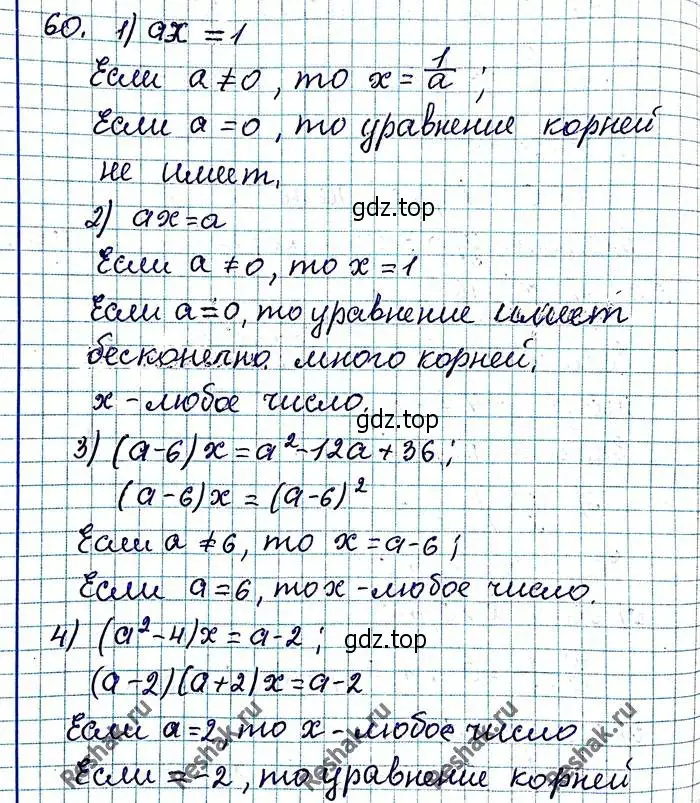 60. 1) ax = 1
Если a ≠ 0, то x = 1/a ;
Если a = 0, то уравнение корней
не имеет.
gdz.top
2) ax = a
Если a ≠ 0, то x = 1
Если a = 0, то уравнение имеет
бесконечно много корней.
x - любое число.
gdz.top
3) (a-6)x = a² - 12a + 36 ;
(a-6)x = (a-6)²
Если a ≠ 6, то x = a-6 ;
Если a = 6, то x - любое число.
4) (a² - 4)x = a - 2 ;
gdz.top
(a-2)(a+2)x = a-2
Если a = 2, то x - любое число
Если = -2, то уравнение корней
Reshak.ru Reshak.ru Reshak.ru Reshak.ru Reshak.ru